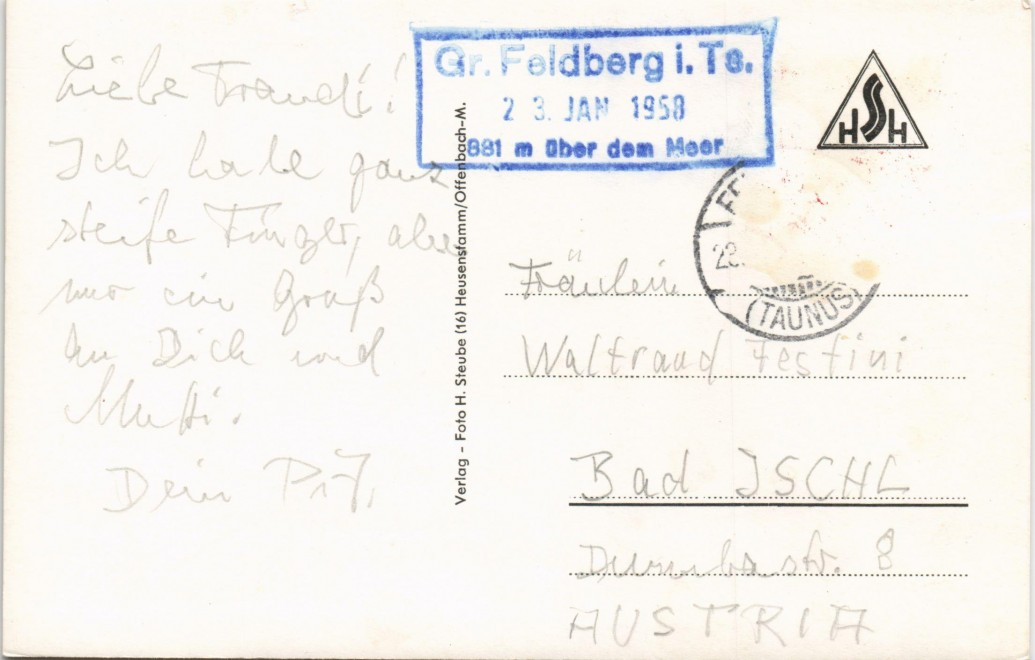 Liebe Traudi!
Ich habe ganz
steife Finger, aber
nur ein Gruß
an Dich und
Mutti.
Dein
Verlag - Foto H. Steube (16) Heusenstamm/Offenbach-M.
Gr. Feldberg i. Ts.
23. JAN 1958
881 m über dem Meer
HSH
(TAUNUS)
Fräulein
Waltraud Festini
Bad ISCHL
8
AUSTRIA